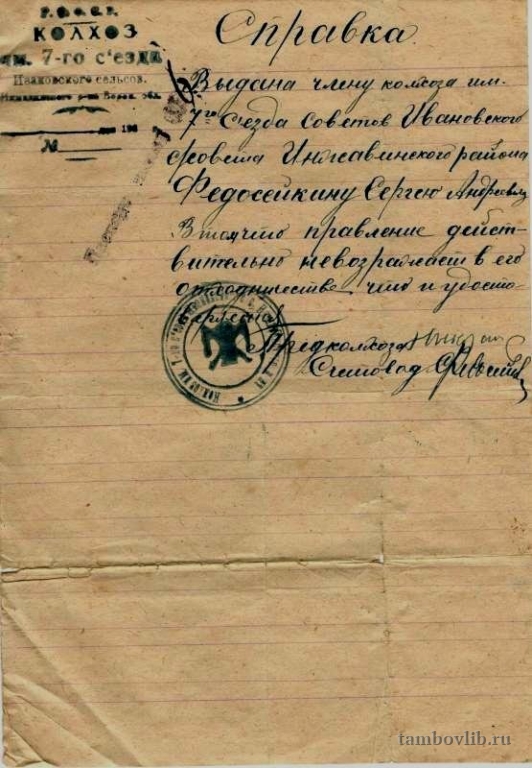 Р.С.Ф.С.Р.
КОЛХОЗ
им. 7-го с'езда
Ивановского сельсов.
Инжавинского р-на Ворон. обл.
193
№
Справка.
Выдана члену колхоза им.
7го Съезда Советов Ивановского
совета Инжавинского района
Федосейкину Сергею Андреевич
В том что правление дейст-
вительно невозражает в его
отходничестве что и удосто-
Предколхоза
Счетовод
tambovlib.ru